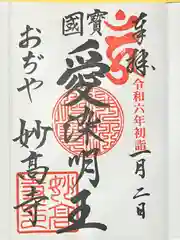 奉拝
令和六年初詣
一月二日
寶國
愛染明王
おぢや
妙高寺